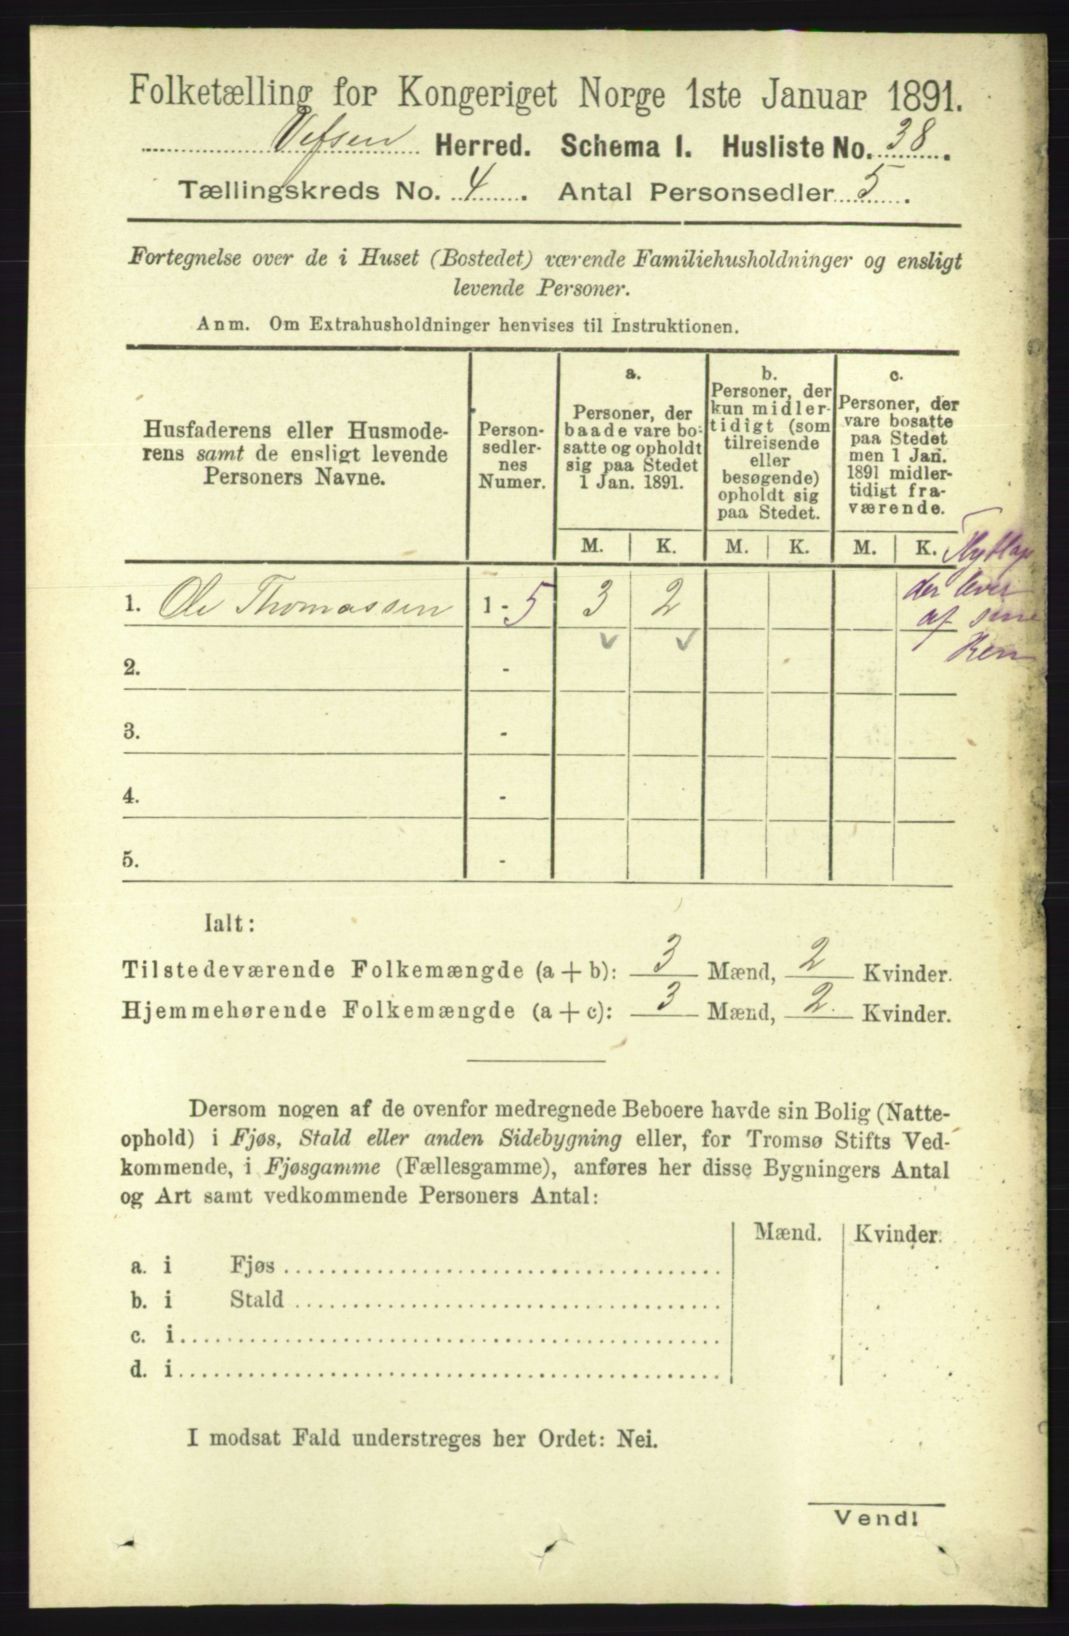 Folketælling for Kongeriget Norge 1ste Januar 1891.
Vefsen Herred. Schema I. Husliste No. 38.
Tællingskreds No. 4. Antal Personsedler 5.
Fortegnelse over de i Huset (Bostedet) værende Familiehusholdninger og ensligt
levende Personer.
Anm. Om Extrahusholdninger henvises til Instruktionen.
Husfaderens eller Husmode-
rens samt de ensligt levende
Personers Navne.
Person-
sedler-
nes
Numer.
a.
Personer, der
baade vare bo-
satte og opholdt
sig paa Stedet
1 Jan. 1891.
b.
Personer, der
kun midler-
tidigt (som
tilreisende
eller
besøgende)
opholdt sig
paa Stedet.
c.
Personer, der
vare bosatte
paa Stedet
men 1 Jan.
1891 midler-
tidigt fra-
værende.
M. K. M. K. M. K.
1. Ole Thomassen 1 - 5 3 2
der lever
af sine
Ren
2. -
3. -
4. -
5. -
Ialt:
Tilstedeværende Folkemængde (a + b): 3 Mænd, 2 Kvinder.
Hjemmehørende Folkemængde (a + c): 3 Mænd, 2 Kvinder.
Dersom nogen af de ovenfor medregnede Beboere havde sin Bolig (Natte-
ophold) i Fjøs, Stald eller anden Sidebygning eller, for Tromsø Stifts Ved-
kommende, i Fjøsgamme (Fællesgamme), anføres her disse Bygningers Antal
og Art samt vedkommende Personers Antal:
Mænd. Kvinder.
a. i Fjøs
b. i Stald
c. i
d. i
I modsat Fald understreges her Ordet: Nei.
Vend!